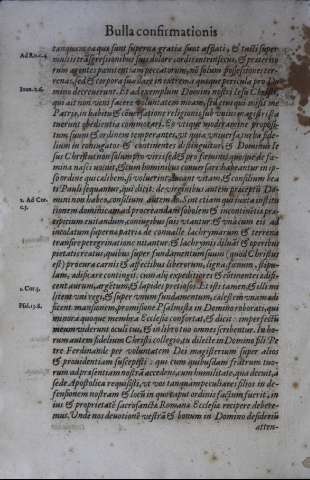 Bulla confirmationis
tanquam ea quæ sunt superna gratia sunt afflati, & tulsi super
Ad Ro. c. 4.
rum agentes pœnitentiam peccatorum, nõ solum possessiones terre
renas, sed & corpora sua dare in extrema quæque pericula pro Do
mino decreuerunt. Et ad exemplum Domini nostri Iesu Christi,
Ioan. 2. 6.
qui ait non veni facere voluntatem meam, sed eius qui misit me
Patris, in habitu & conuersatione religionis sub vnius magistri sta
tuerunt obedientia commorari. Eo vtique moderamine proposi
tum suum & ordinem temperantes, vt quia vniuersa turba fide
lium in coniugatos & continentes distinguitur, & Dominus Ie
sus Christus non solum pro viris sed & pro fœminis, quoque de fœ
mina nasci voluit, & cum hominibus conuersari habeantur in ip
so ordine qui cælibem, si voluerint, ducant vitam, & consilium bea
ti Pauli sequantur, qui dicit: de virginibus autem præceptũ Do
2. Ad Cor.
c. 7.
mini non habeo, consilium autem do. Sint etiam qui iuxta institu
tionem dominicam, ad procreandam sobolem & incontinentiæ præ
cipitium euitandum, coniugibus suis vtantur & vnà cum eis ad
incolatum superna patriæ de conualle lachrymarum & terrena
transire peregrinatione nitantur: & lachrymis diluãt & operibus
pietatis reatus, quibus super fundamentum suum (quod Christus
est) præ cura carnis & affectibus liberorum, ligna, fœnum, stipu-
lam, adijscare contigerit. cum alij expeditiores & cõtinentes ædifi
2. Cor. 3.
cent aurum, argentũ, & lapides pretiosos. Et isti tamen, & illi mi
litent vni regi, & super vnum fundamentum, cælestem vnam ædi
ficent mansionem, promissione Psalmistæ in Domino roborati, qui
Psal. 138.
minora quoque membra Ecclesiæ confortat, & dicit: imperfectũ
meum viderunt oculi tui, & in libro tuo omnes scribentur. In ho-
rum autem fidelium Christi collegio, tu dilecte in Domino fili Pe
tre Ferdinande per voluntatem Dei magisterium super alios
& prouidentiam suscepisti: qui cum quibusdam fratribus tuo-
rum ad præsentiam nostrã accedens, cum humilitate, qua decuit, à
sede Apostolica requisisti, vt vos tanquam peculiares filios in de-
fensionem nostram & locũ in quo caput ordinis factum fuerit, in
ius & proprietatẽ sacrosanctæ Romanæ Ecclesiæ recipere debere-
mus. Vnde nos deuotionẽ vestrã & bonum in Domino desideriũ
atten-